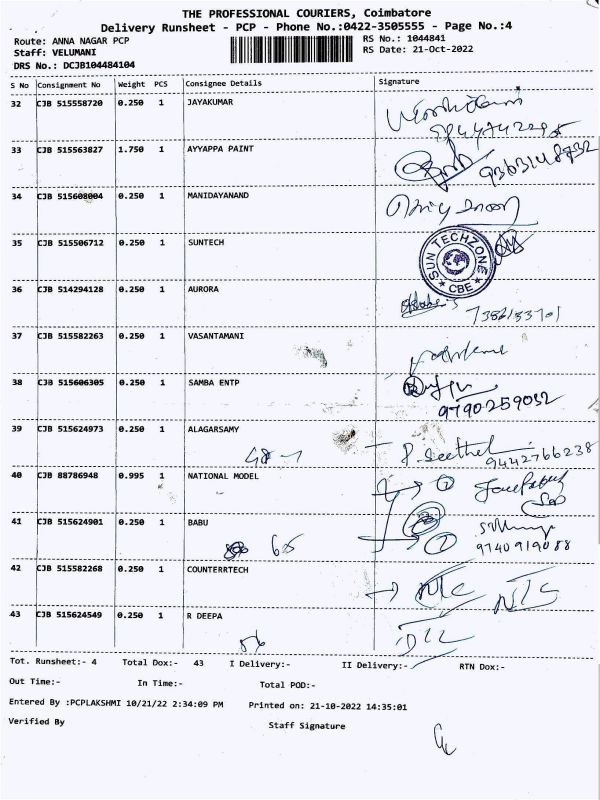 THE PROFESSIONAL COURIERS, Coimbatore
Delivery Runsheet - PCP - Phone No.:0422-3505555 - Page No.:4
Route: ANNA NAGAR PCP RS No.: 1044841
Staff: VELUMANI RS Date: 21-Oct-2022
DRS No.: DCJB104484104
S No Consignment No Weight PCS Consignee Details Signature
32 CJB 515558720 0.250 1 JAYAKUMAR
33 CJB 515563827 1.750 1 AYYAPPA PAINT 9363148732
34 CJB 515608004 0.250 1 MANIDAYANAND
35 CJB 515506712 0.250 1 SUNTECH SUN TECHZONE CBE
36 CJB 514294128 0.250 1 AURORA
37 CJB 515582263 0.250 1 VASANTAMANI
38 CJB 515606305 0.250 1 SAMBA ENTP
9790259032
39 CJB 515624973 0.250 1 ALAGARSAMY
9442766238
40 CJB 88786948 0.995 1 NATIONAL MODEL
41 CJB 515624901 0.250 1 BABU
65 9740919088
42 CJB 515582268 0.250 1 COUNTERRTECH
43 CJB 515624549 0.250 1 R DEEPA
Tot. Runsheet:- 4 Total Dox:- 43 I Delivery:- II Delivery:- RTN Dox:-
Out Time:- In Time:- Total POD:-
Entered By :PCPLAKSHMI 10/21/22 2:34:09 PM Printed on: 21-10-2022 14:35:01
Verified By Staff Signature